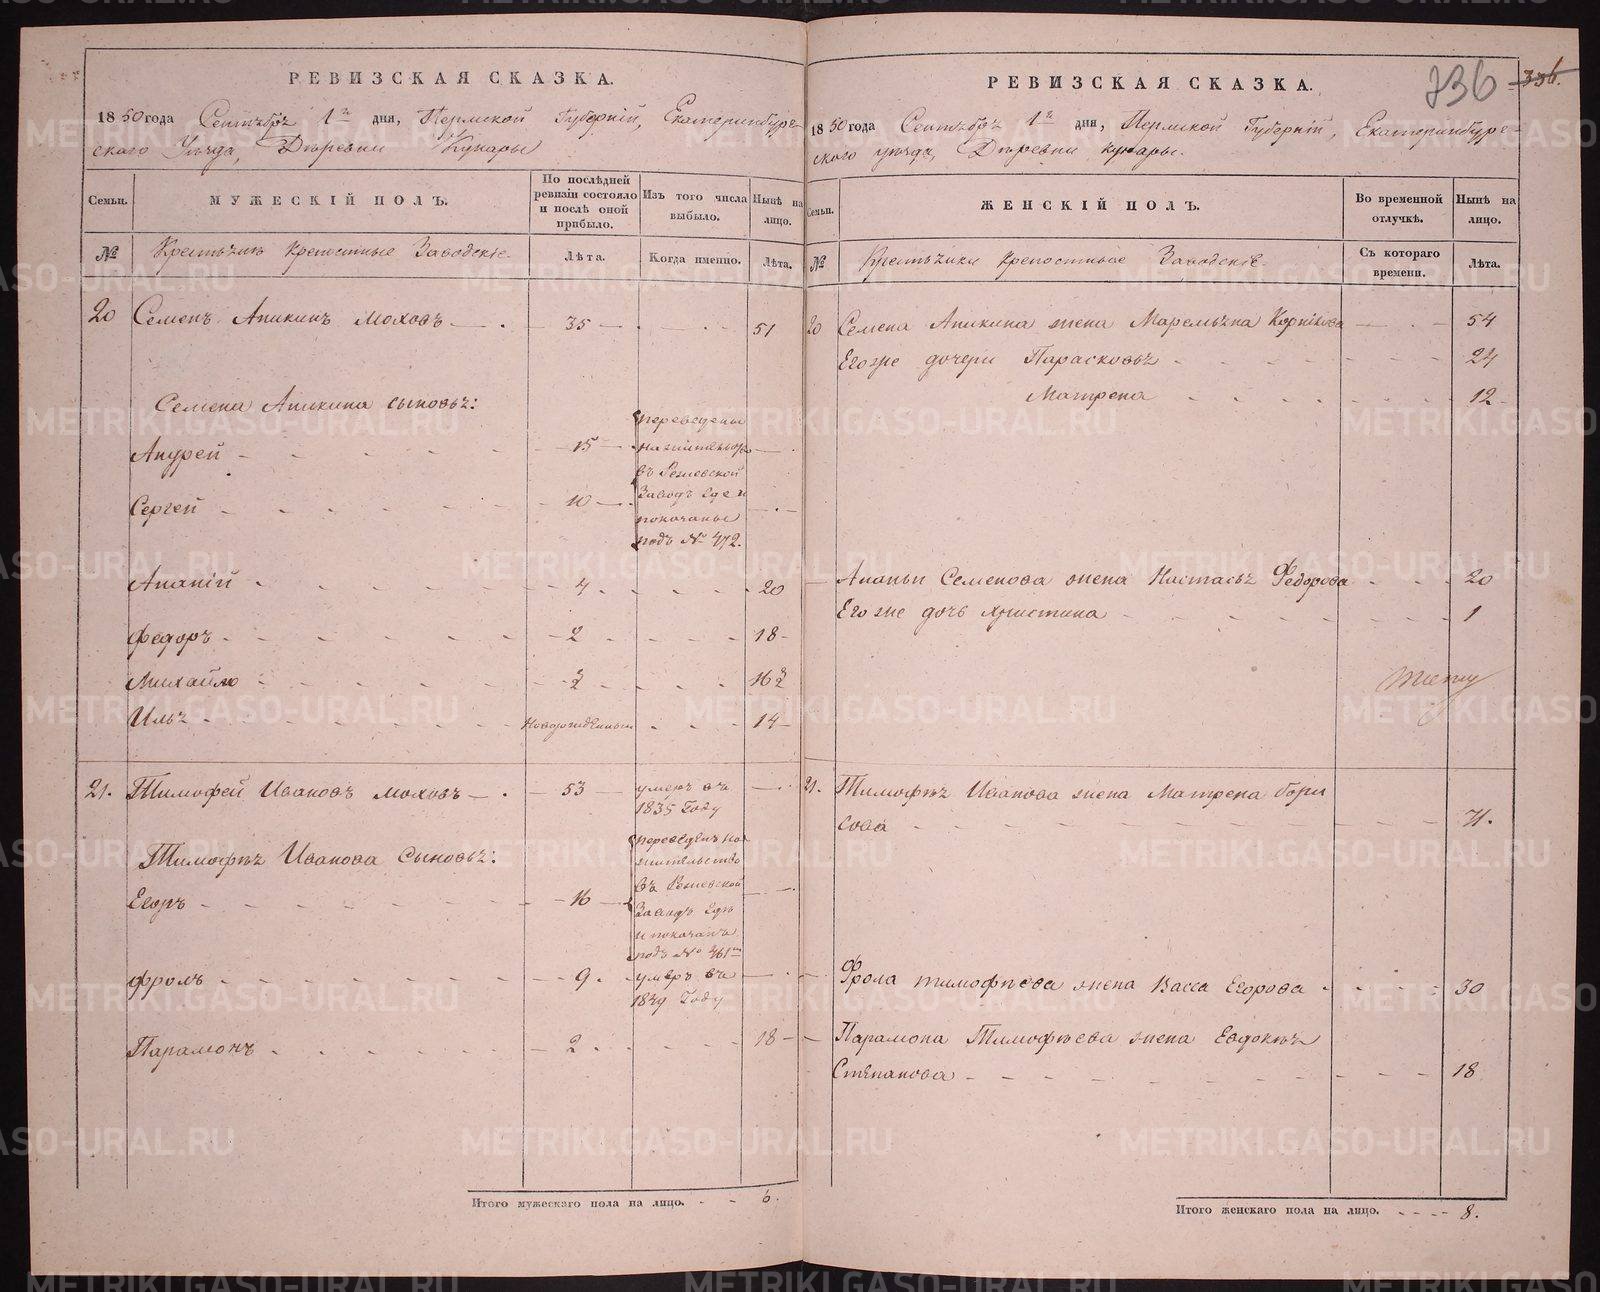 РЕВИЗСКАЯ СКАЗКА.
1850 года Сентября 1го дня, Пермской Губерніи, Екатеринбург-
скаго Уѣзда, Деревни Кунары
Семьи.
МУЖЕСКІЙ ПОЛЪ.
По послѣдней ревизіи состояло и послѣ оной прибыло.
Изъ того числа выбыло.
Нынѣ на лицо.
№
Крестьяне крепостные Заводскіе.
Лѣта.
Когда именно.
Лѣта.
20 Семенъ Аникинъ Моховъ 35 51
Семена Аникина сыновья:
Андрей 15
Сергей 10
переведены
на жительство
въ Режевской
Заводъ где и
показаны
подъ № 472.
Ананій 4 20
Федоръ 2 18
Михайло
Илья Новорожденный 14
21. Тимофей Ивановъ Моховъ 53 умеръ въ
1835 Году
Тимофея Иванова Сыновья:
Егоръ 16
переведенъ на
жительство
въ Режевской
Заводъ где
и показанъ
подъ № 461м
Фролъ 9. умеръ въ
1849 Году
Парамонъ 2. 18
Итого мужескаго пола на лицо. 6.
РЕВИЗСКАЯ СКАЗКА.
736 336.
1850 года Сентября 1го дня, Пермской Губерніи, Екатеринбург-
скаго уѣзда, Деревни кунары.
Семьи.
ЖЕНСКІЙ ПОЛЪ.
Во временной отлучкѣ.
Нынѣ на лицо.
№
Крестьянки крепостные Заводскіе.
Съ котораго времени.
Лѣта.
20 Семена Аникина жена Маремьяна Корнилова 54
Егоже дочери Парасковья 24
Матрена 12
Ананьи Семенова жена Настасья Федорова 20
Его же дочь Христина 1
21. Тимофея Иванова жена Матрена Бори
сова 71.
Фрола Тимофеева жена Васса Егорова 30
Парамона Тимофеева жена Евдокья
Степанова 18
Итого женскаго пола на лицо. 8.
METRIKI.GASO-URAL.RU